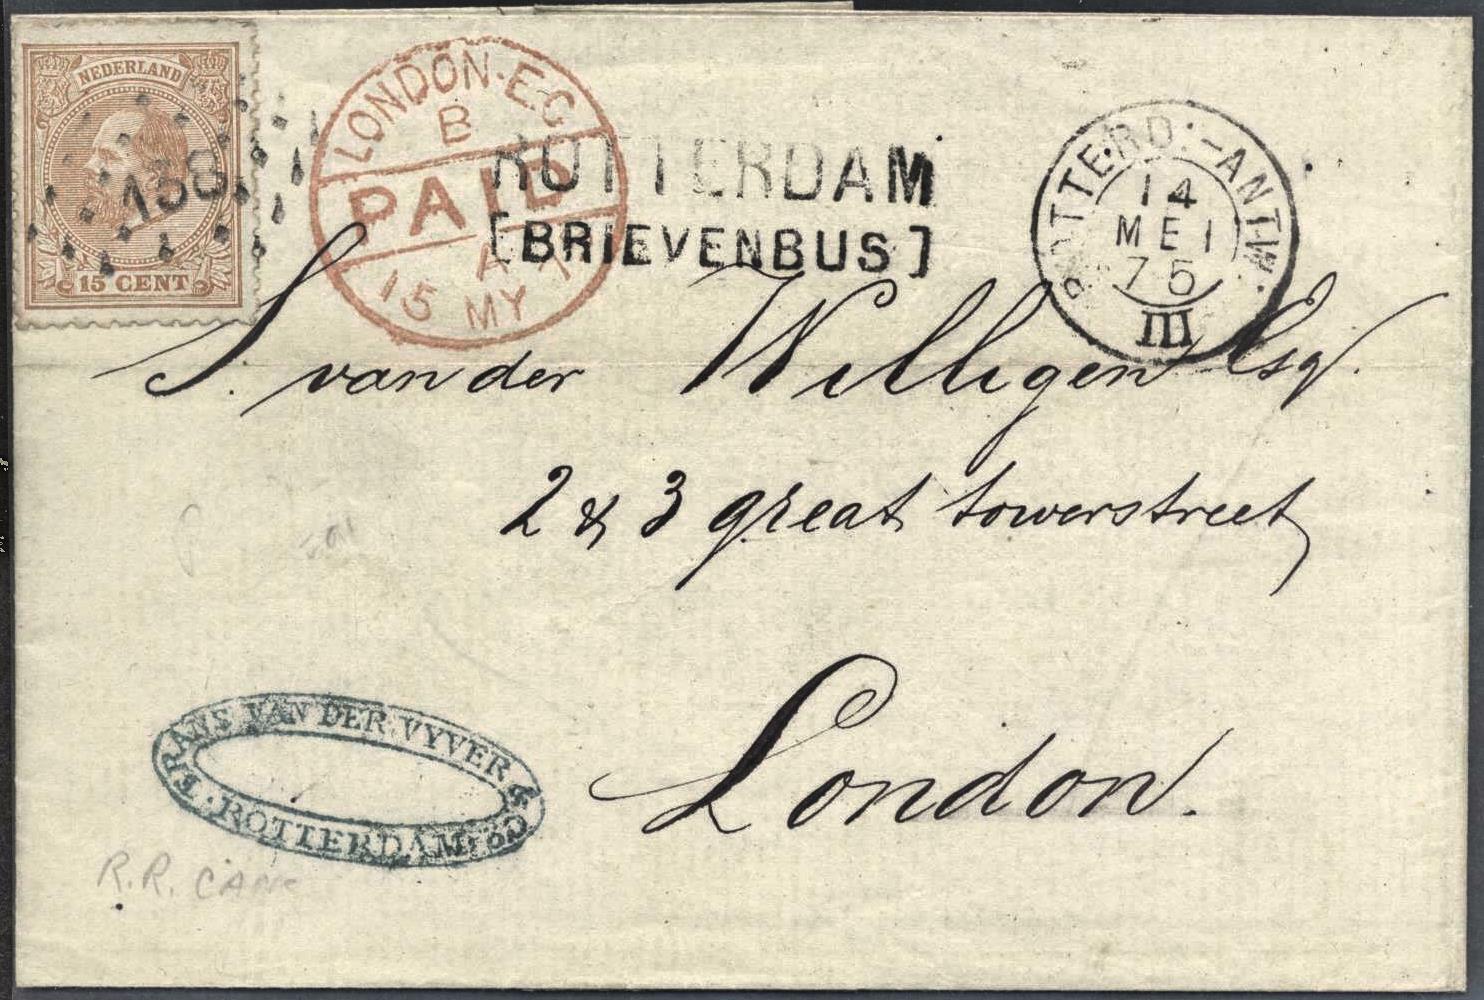 NEDERLAND
138
15 CENT
LONDON·E.C
B
PAID
A
15 MY 7
ROTTERDAM
[BRIEVENBUS]
ROTTERD:-ANTW:
14
MEI
75
III
S. van der Willigen Esqr.
2 & 3 great towerstreet
London.
FRANS VAN DER VYVER & Co.
ROTTERDAM
R.R. CANC